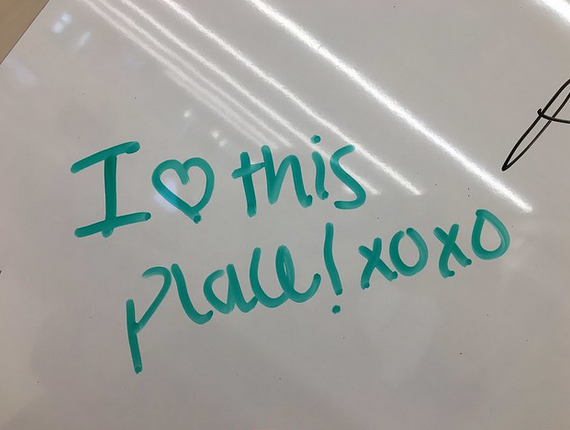 I ♡ this
place! xoxo